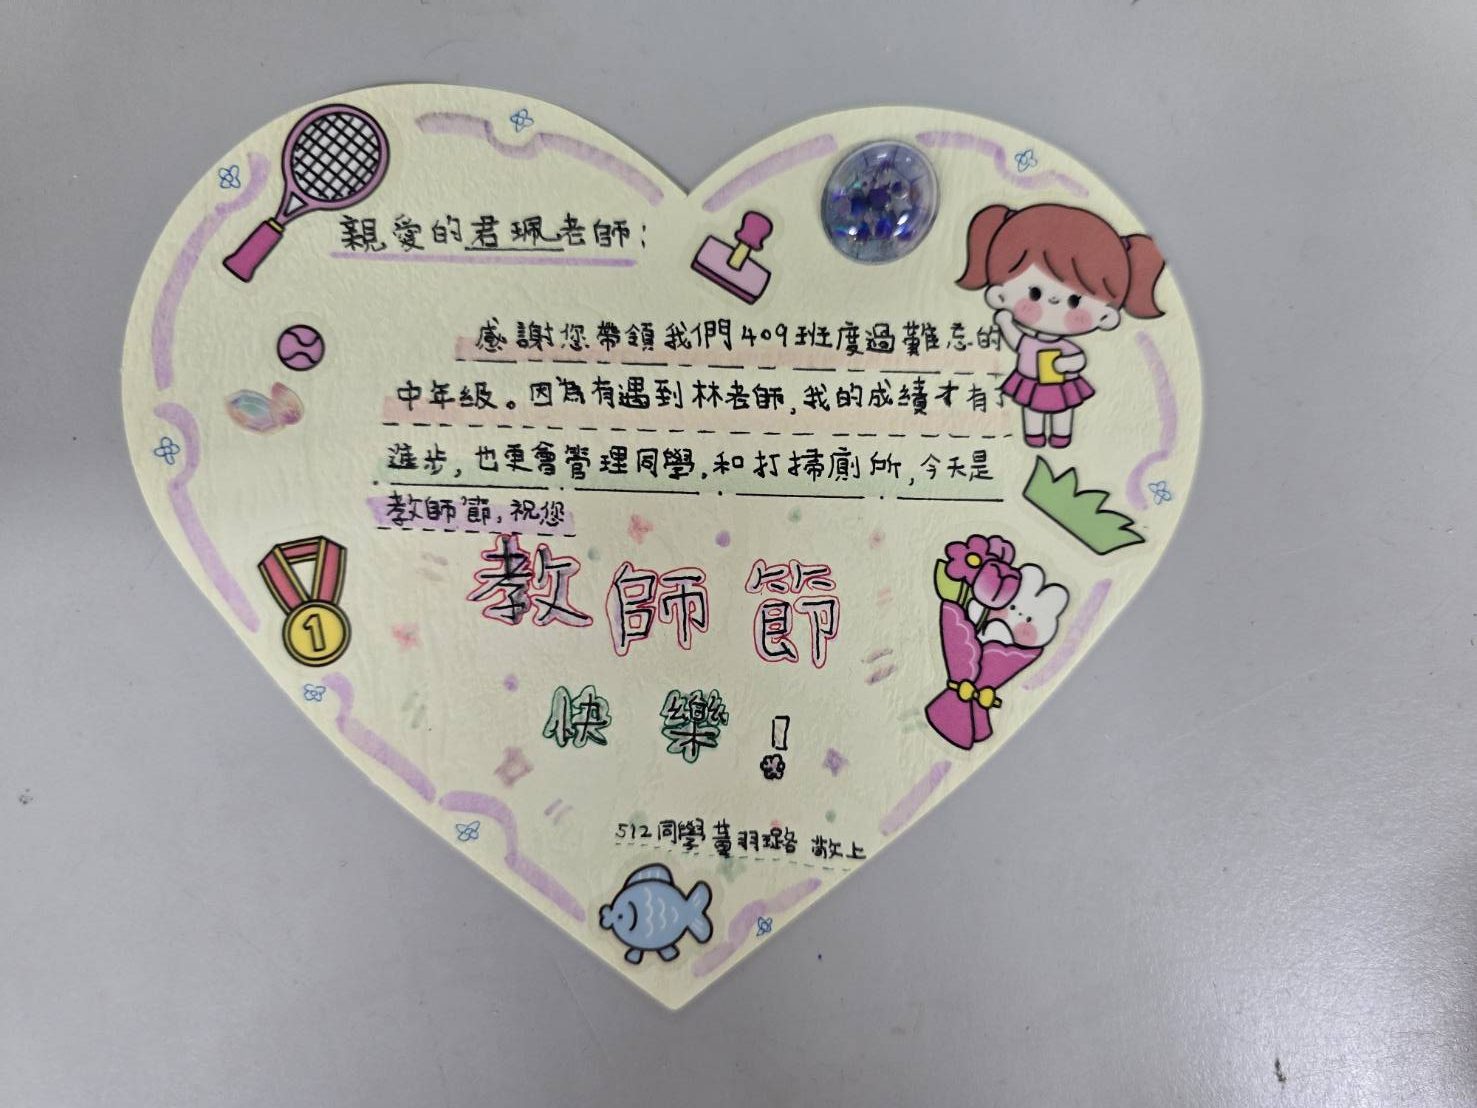 親愛的君珮老師：
感謝您帶領我們409班度過難忘的
中年級。因為有遇到林老師，我的成績才有了
進步，也更會管理同學，和打掃廁所，今天是
教師節，祝您
教師節
快樂！
512同學黃羽璐 敬上
1